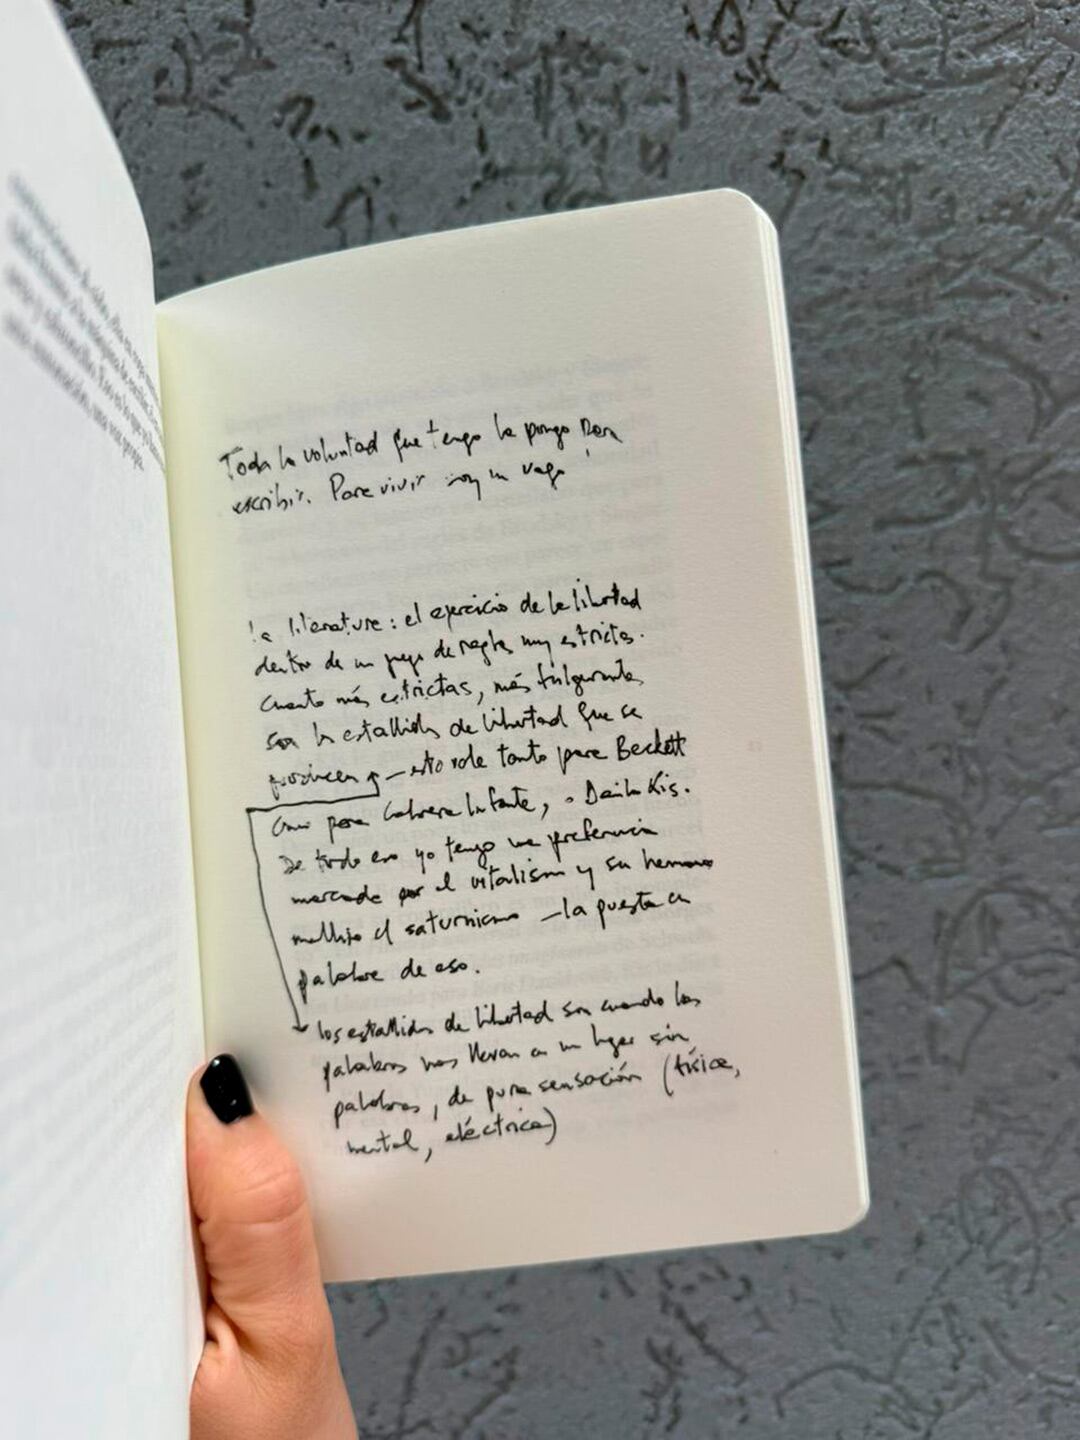 Toda la voluntad que tengo la pongo para
escribir. Para vivir soy un vago
La literatura: el ejercicio de la libertad
dentro de un juego de reglas muy estrictas.
Cuanto más estrictas, más fulgurantes
son los estallidos de libertad que se
producen — esto vale tanto para Beckett
como para Cabrera Infante, o Danilo Kis.
De todo eso yo tengo una preferencia
marcada por el vitalismo y su hermano
mellizo el saturnismo — la puesta en
palabra de eso.
los estallidos de libertad son cuando las
palabras nos llevan a un lugar sin
palabras, de pura sensación (física,
mental, eléctrica)